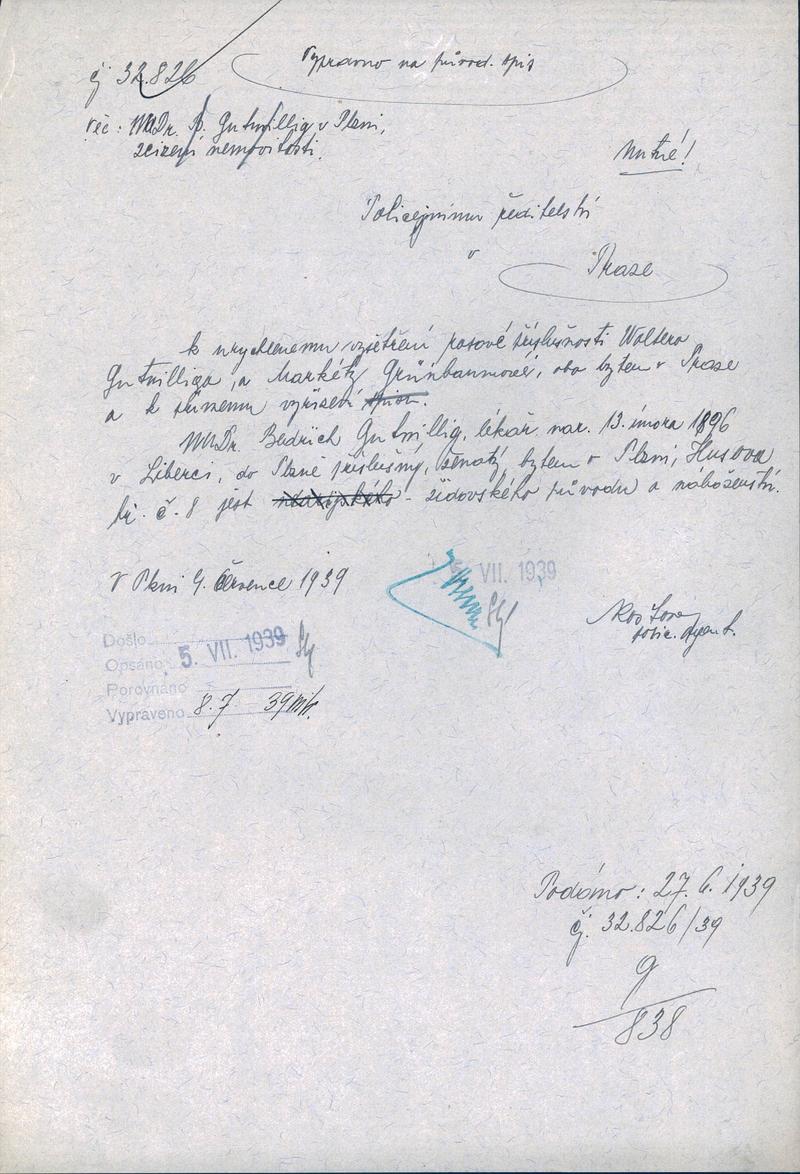 Vypraveno na původ. spis
čj 32.826
Věc: MUDr. B. Gutwillig v Plzni,
zcizení nemovitosti.
Nutné!
Policejnímu ředitelství
v
Praze
k urychlenému vyšetření rasové příslušnosti Waltera
Gutwilliga, a Markéty Grünbaumové, oba bytem v Praze
a k přímému vyřízení
MUDr. Bedřich Gutwillig, lékař, nar. 13. února 1896
v Liberci, do Plzně příslušný, ženatý, bytem v Plzni, Husova
tř. č. 8 jest židovského původu a náboženství.
V Plzni 4. července 1939
5. VII. 1939
polic. agent.
Došlo
Opsáno 5. VII. 1939
Porovnáno
Vypraveno 8. 7 39
Podáno: 27. 6. 1939
čj. 32.826/39
g
838